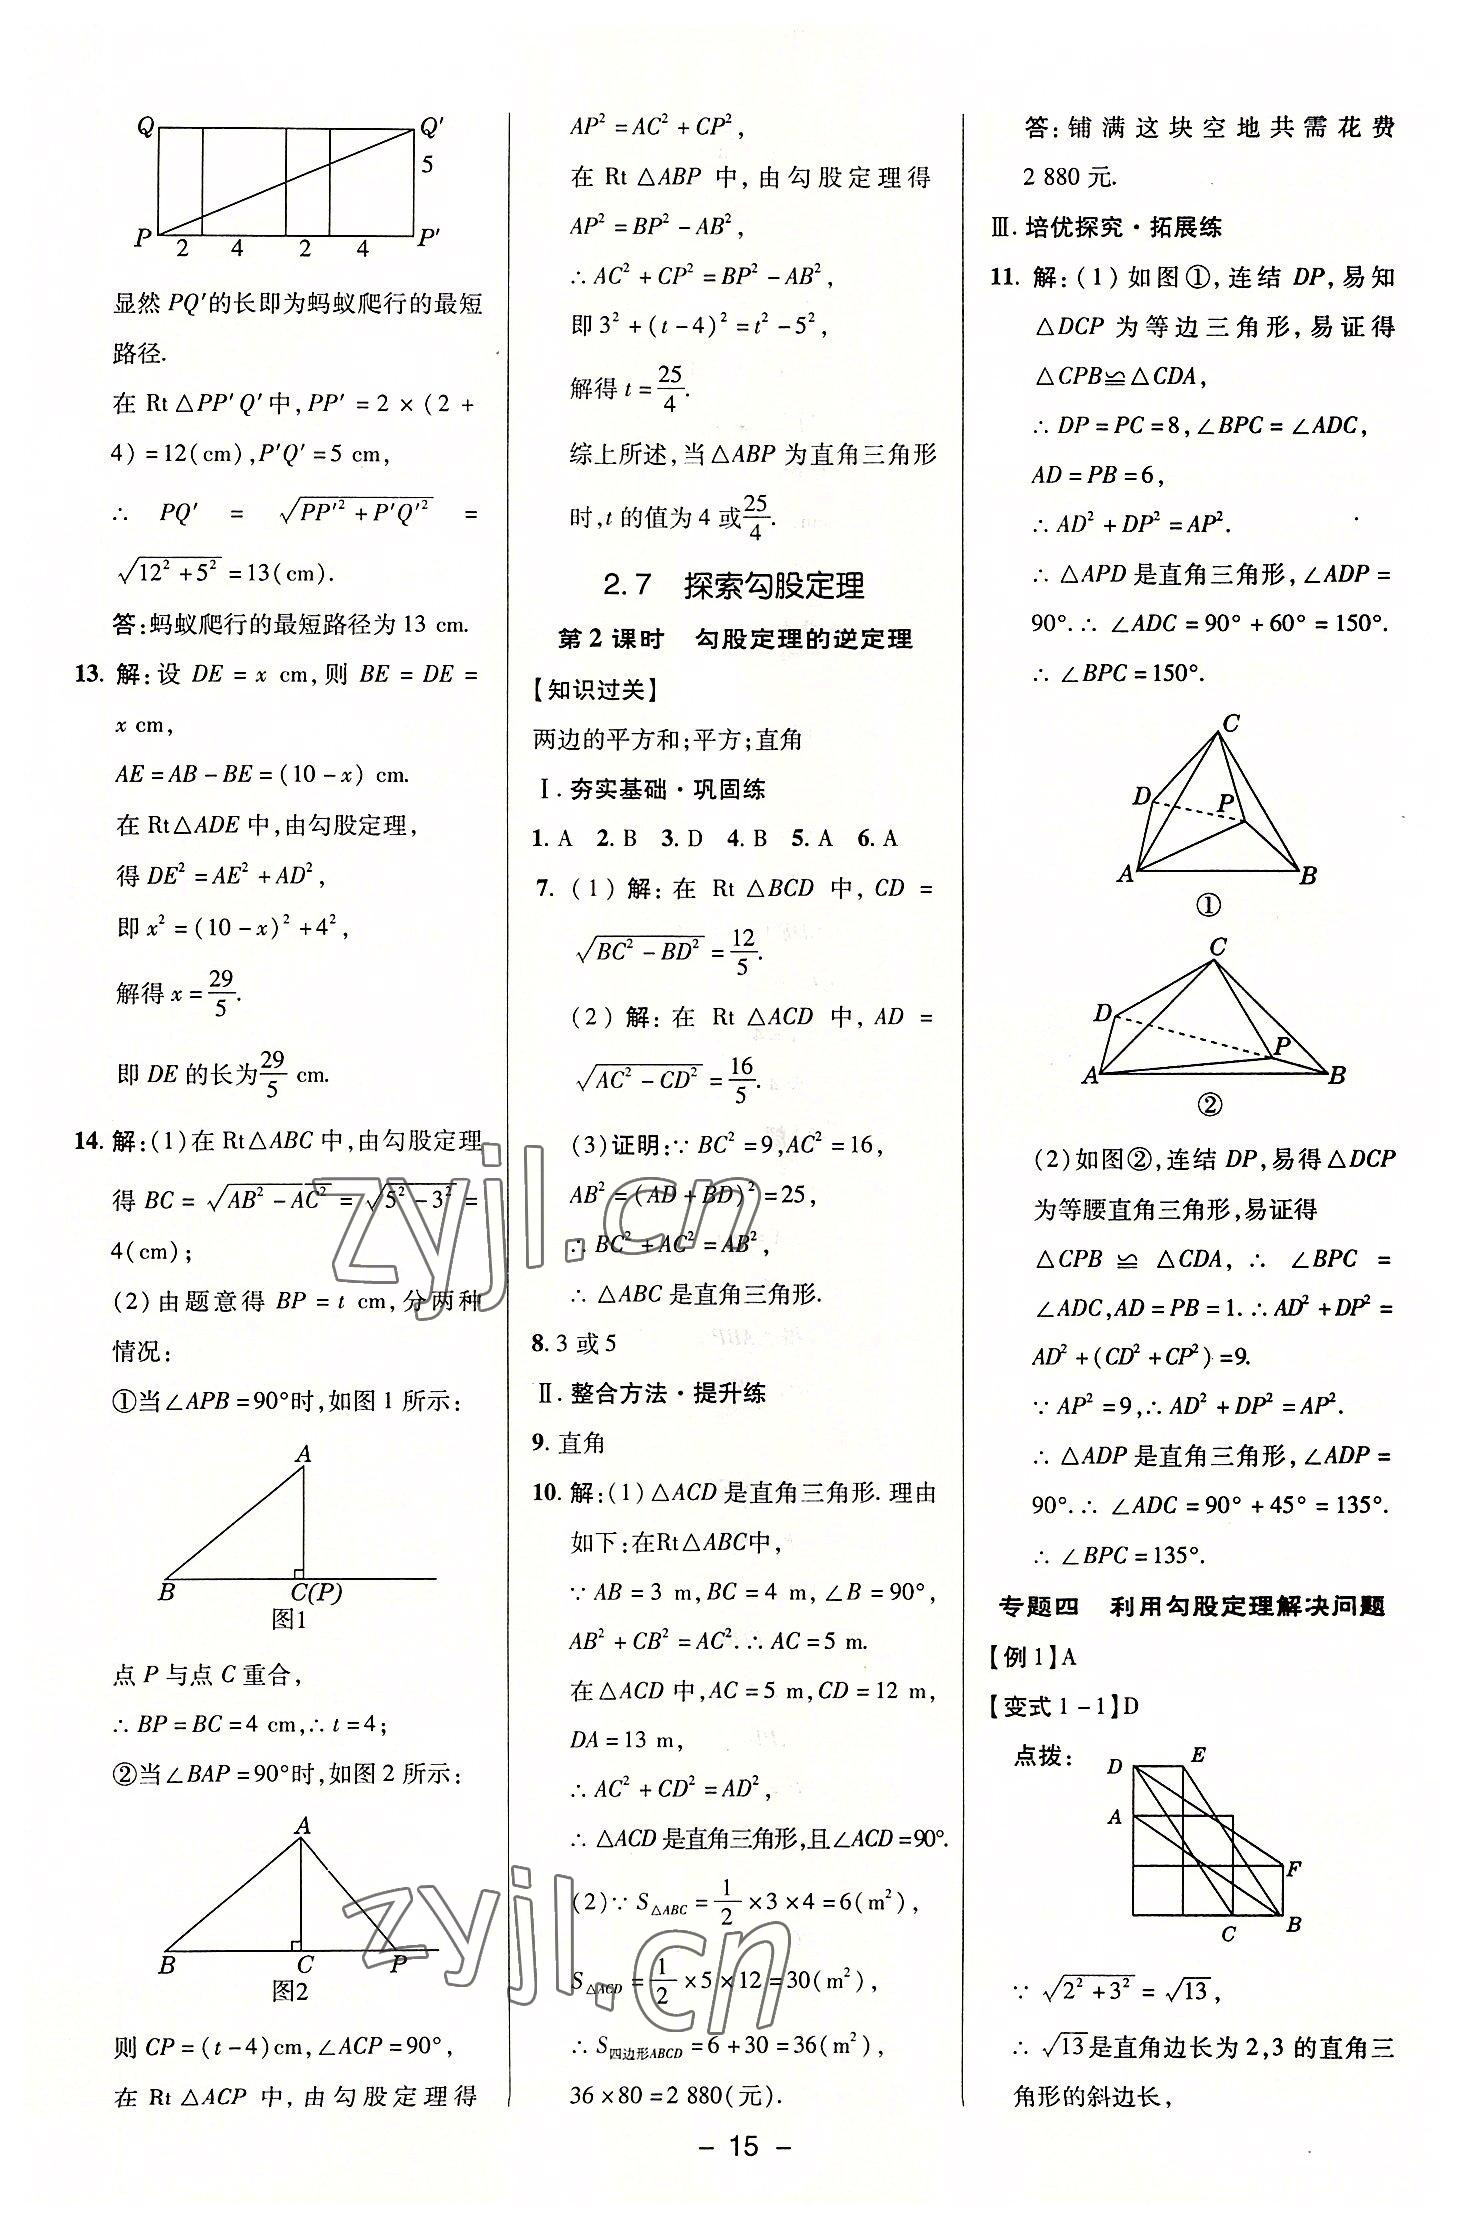 Q Q′
5
P 2 4 2 4 P′
显然 PQ′的长即为蚂蚁爬行的最短
路径.
在 Rt△PP′Q′中,PP′=2×(2+
4)=12(cm),P′Q′=5 cm,
∴ PQ′ = √(PP′²+P′Q′²) =
√(12²+5²)=13(cm).
答:蚂蚁爬行的最短路径为 13 cm.
13. 解:设 DE=x cm,则 BE=DE=
x cm,
AE=AB-BE=(10-x) cm.
在 Rt△ADE 中,由勾股定理,
得 DE²=AE²+AD²,
即 x²=(10-x)²+4²,
解得 x=29/5.
即 DE 的长为29/5 cm.
14. 解:(1)在 Rt△ABC 中,由勾股定理
得 BC=√(AB²-AC²)=√(5²-3²)=
4(cm);
(2)由题意得 BP=t cm,分两种
情况:
①当∠APB=90°时,如图 1 所示:
A
B C(P)
图1
点 P 与点 C 重合,
∴BP=BC=4 cm,∴t=4;
②当∠BAP=90°时,如图 2 所示:
A
B C P
图2
则 CP=(t-4)cm,∠ACP=90°,
在 Rt△ACP 中,由勾股定理得
AP²=AC²+CP²,
在 Rt△ABP 中,由勾股定理得
AP²=BP²-AB²,
∴AC²+CP²=BP²-AB²,
即 3²+(t-4)²=t²-5²,
解得 t=25/4.
综上所述,当△ABP 为直角三角形
时,t 的值为 4 或25/4.
2.7 探索勾股定理
第 2 课时 勾股定理的逆定理
【知识过关】
两边的平方和;平方;直角
Ⅰ. 夯实基础·巩固练
1. A 2. B 3. D 4. B 5. A 6. A
7. (1)解:在 Rt△BCD 中,CD=
√(BC²-BD²)=12/5.
(2)解:在 Rt△ACD 中,AD=
√(AC²-CD²)=16/5.
(3)证明:∵BC²=9,AC²=16,
AB²=(AD+BD)²=25,
∴BC²+AC²=AB²,
∴△ABC 是直角三角形.
8. 3 或 5
Ⅱ. 整合方法·提升练
9. 直角
10. 解:(1)△ACD 是直角三角形. 理由
如下:在Rt△ABC中,
∵AB=3 m,BC=4 m,∠B=90°,
AB²+CB²=AC².∴AC=5 m.
在△ACD 中,AC=5 m,CD=12 m,
DA=13 m,
∴AC²+CD²=AD²,
∴△ACD 是直角三角形,且∠ACD=90°.
(2)∵S△ABC=1/2×3×4=6(m²),
S△ACD=1/2×5×12=30(m²),
∴S四边形ABCD=6+30=36(m²),
36×80=2 880(元).
答:铺满这块空地共需花费
2 880 元.
Ⅲ. 培优探究·拓展练
11. 解:(1)如图①,连结 DP,易知
△DCP 为等边三角形,易证得
△CPB≌△CDA,
∴DP=PC=8,∠BPC=∠ADC,
AD=PB=6,
∴AD²+DP²=AP².
∴△APD 是直角三角形,∠ADP=
90°.∴∠ADC=90°+60°=150°.
∴∠BPC=150°.
C
D P
A B
①
C
D
P
A B
②
(2)如图②,连结 DP,易得△DCP
为等腰直角三角形,易证得
△CPB≌△CDA,∴∠BPC=
∠ADC,AD=PB=1.∴AD²+DP²=
AD²+(CD²+CP²)=9.
∵AP²=9,∴AD²+DP²=AP².
∴△ADP 是直角三角形,∠ADP=
90°.∴∠ADC=90°+45°=135°.
∴∠BPC=135°.
专题四 利用勾股定理解决问题
【例 1】A
【变式 1-1】D
点拨:
D E
A
F
C B
∵√(2²+3²)=√13,
∴√13是直角边长为 2,3 的直角三
角形的斜边长,
- 15 -
zyjl.cn
zyjl.cn